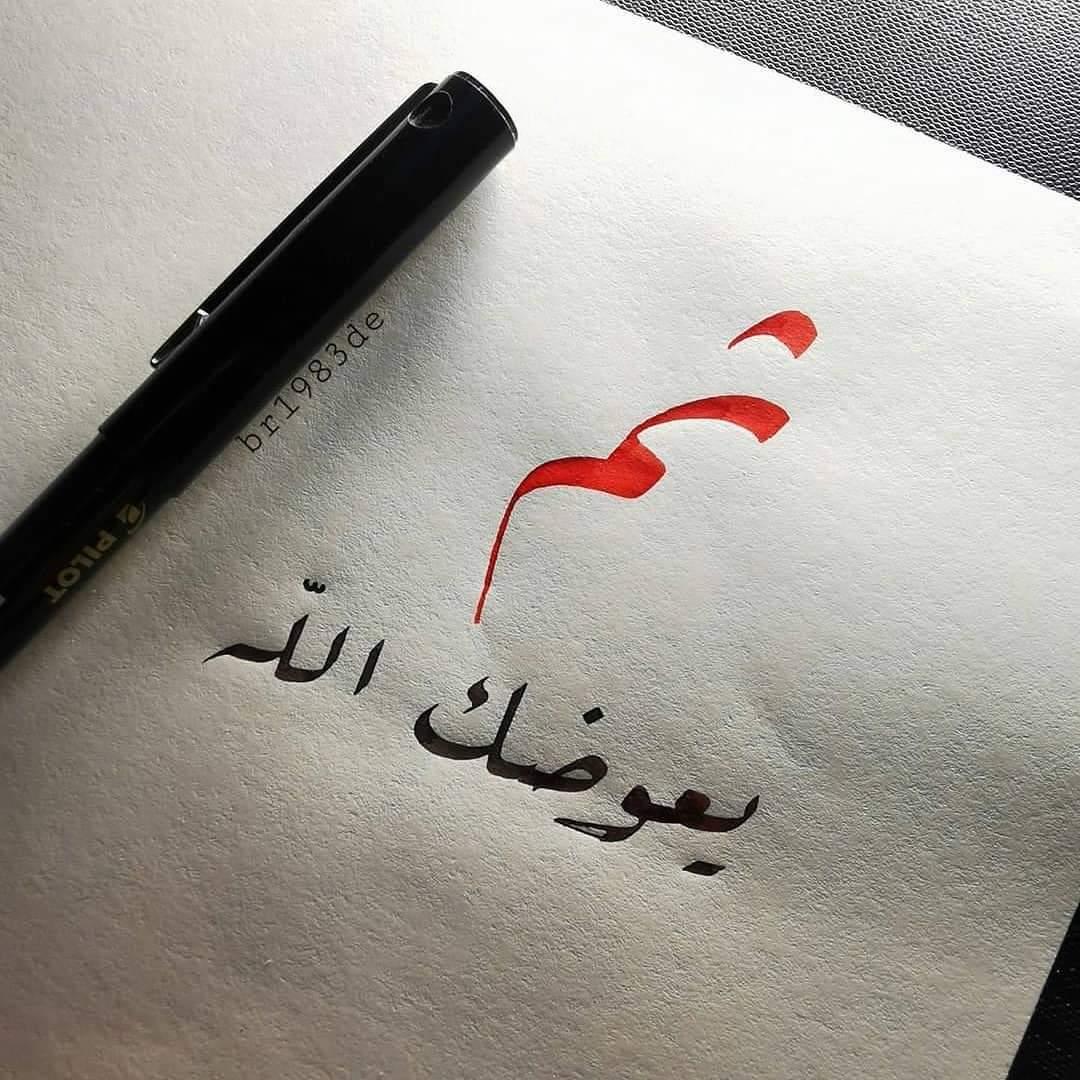 ثم
يعوضك اللّه
br1983de
PILOT